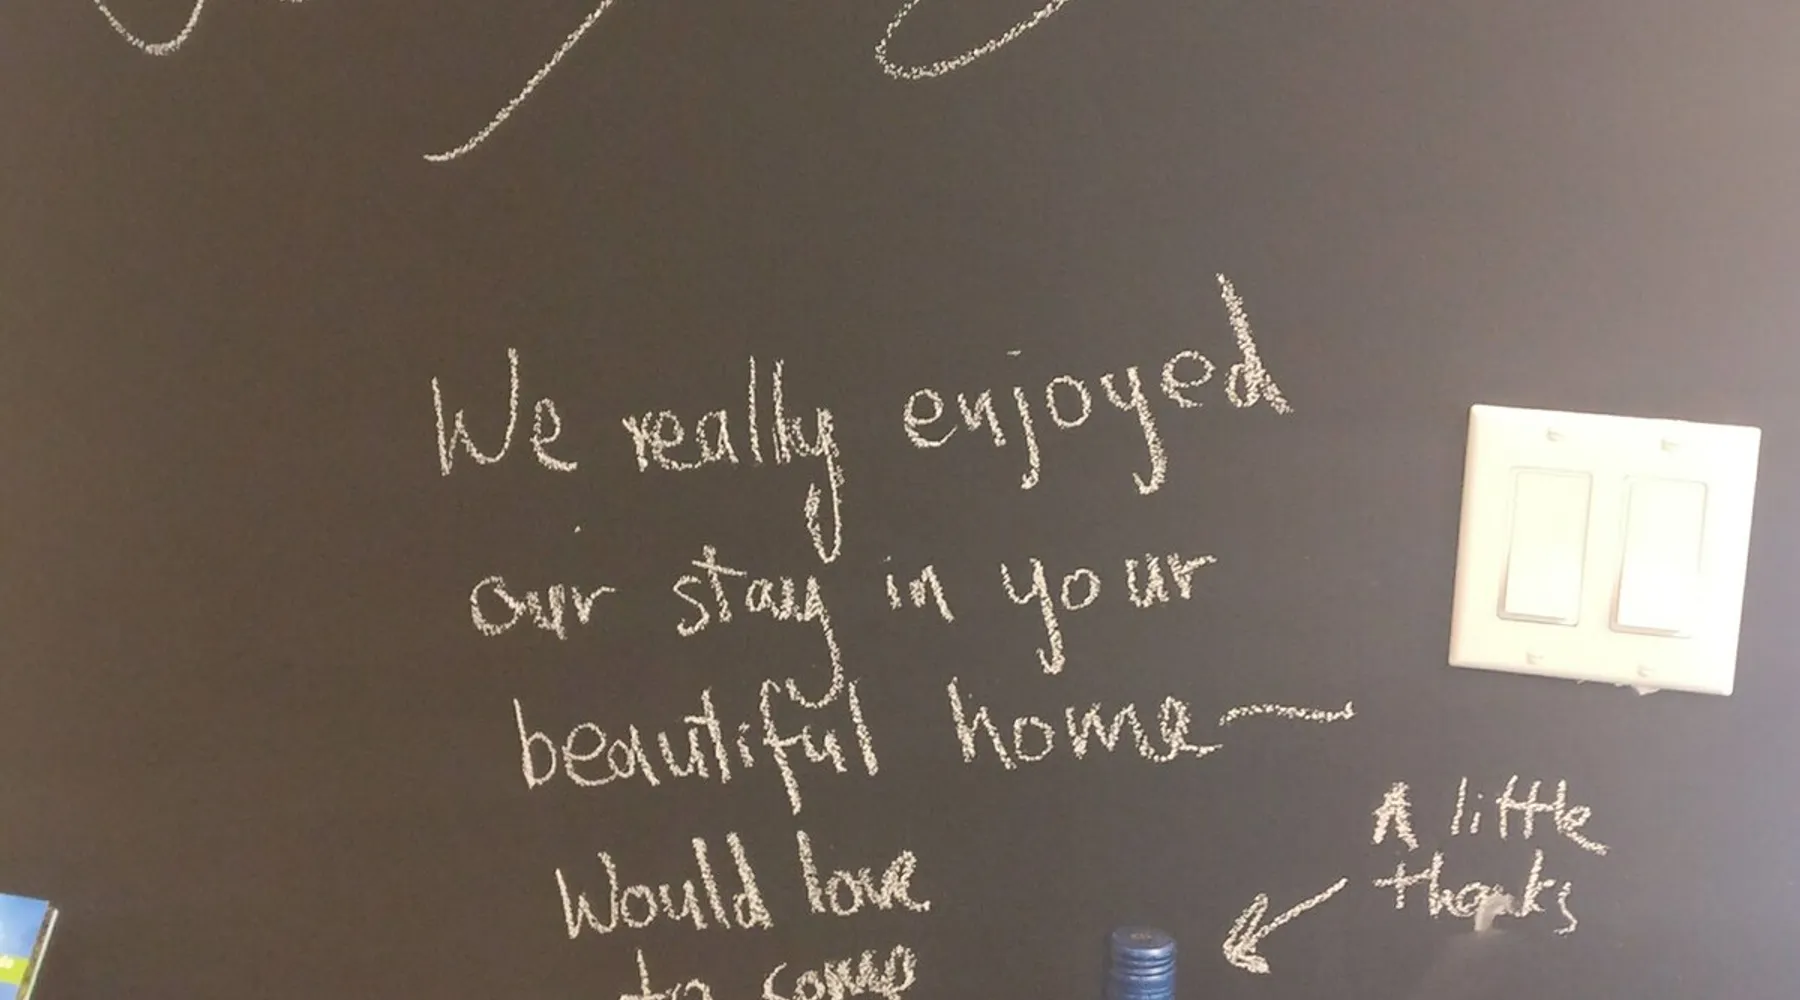 We really enjoyed
our stay in your
beautiful home—
Would love
to come
A little
thanks